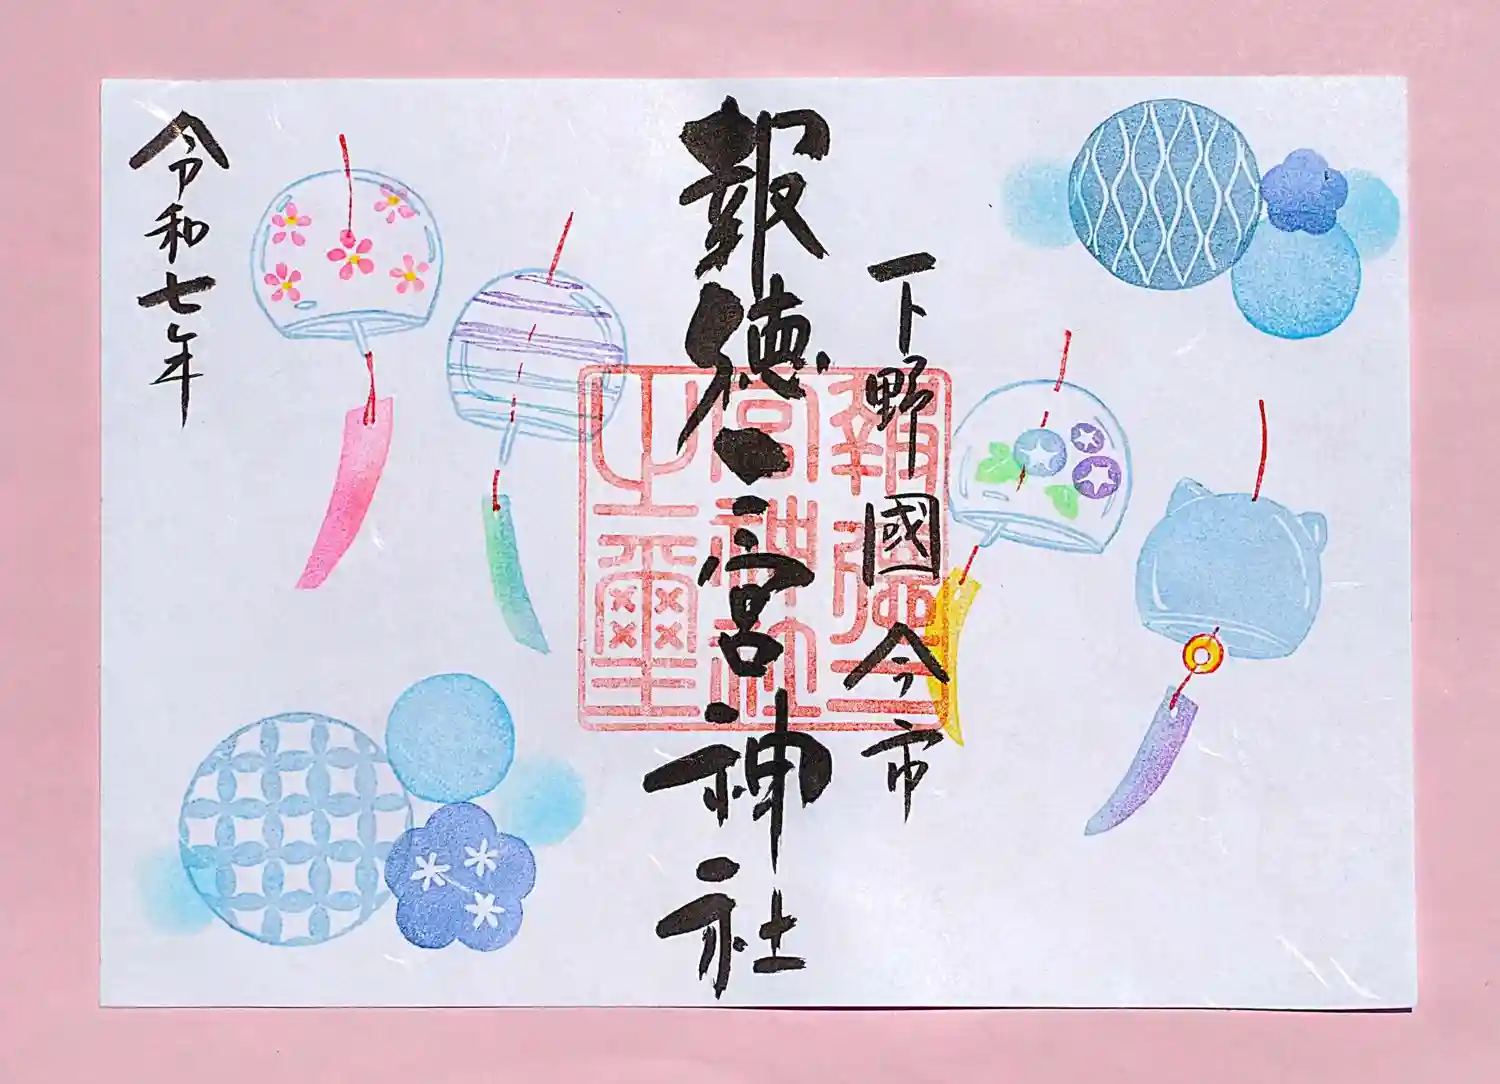 下野國今市
報徳二宮神社
報徳二宮神社之璽
令和七年